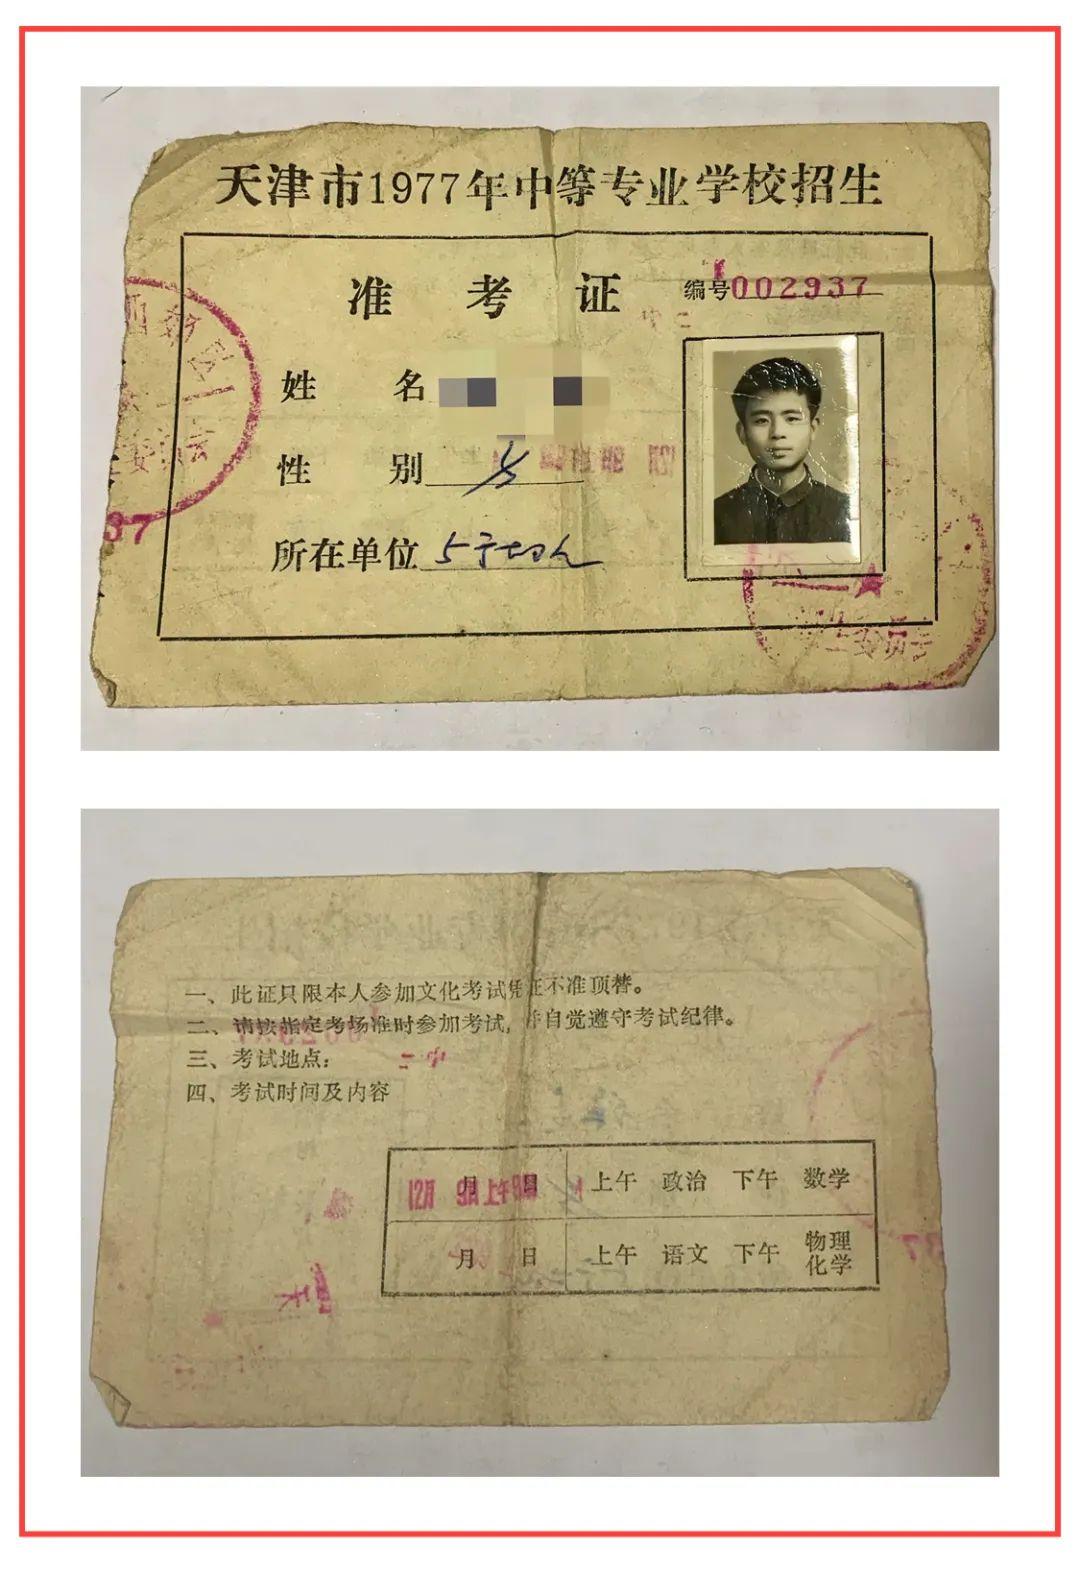 天津市1977年中等专业学校招生
准 考 证
编号 002937
姓 名
性 别
所在单位
37
一、此证只限本人参加文化考试凭证不准顶替。
二、请按指定考场准时参加考试,并自觉遵守考试纪律。
三、考试地点:
四、考试时间及内容
月 日 上午 政治 下午 数学
月 日 上午 语文 下午 物理
化学